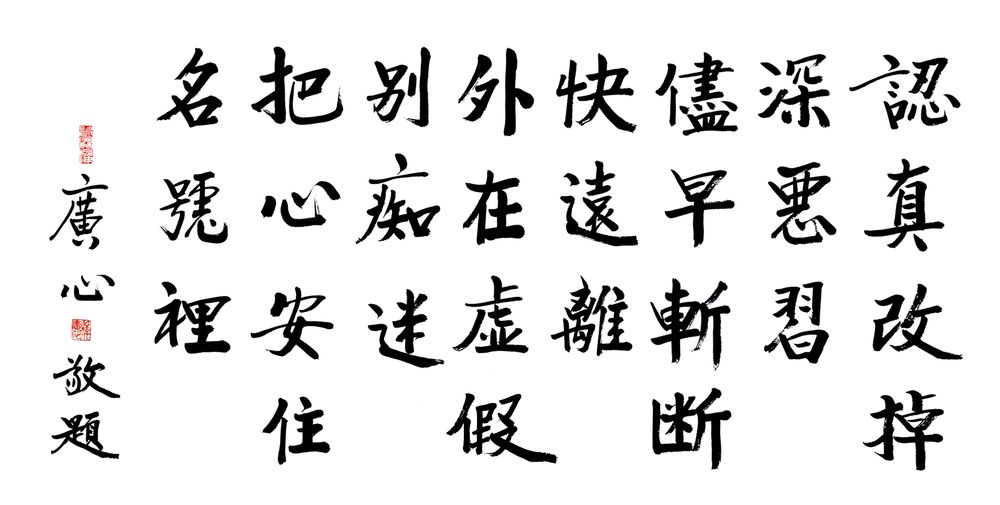 認真改掉
深惡習
儘早斬断
快遠離
外在虛假
别痴迷
把心安住
名號裡
廣心敬題